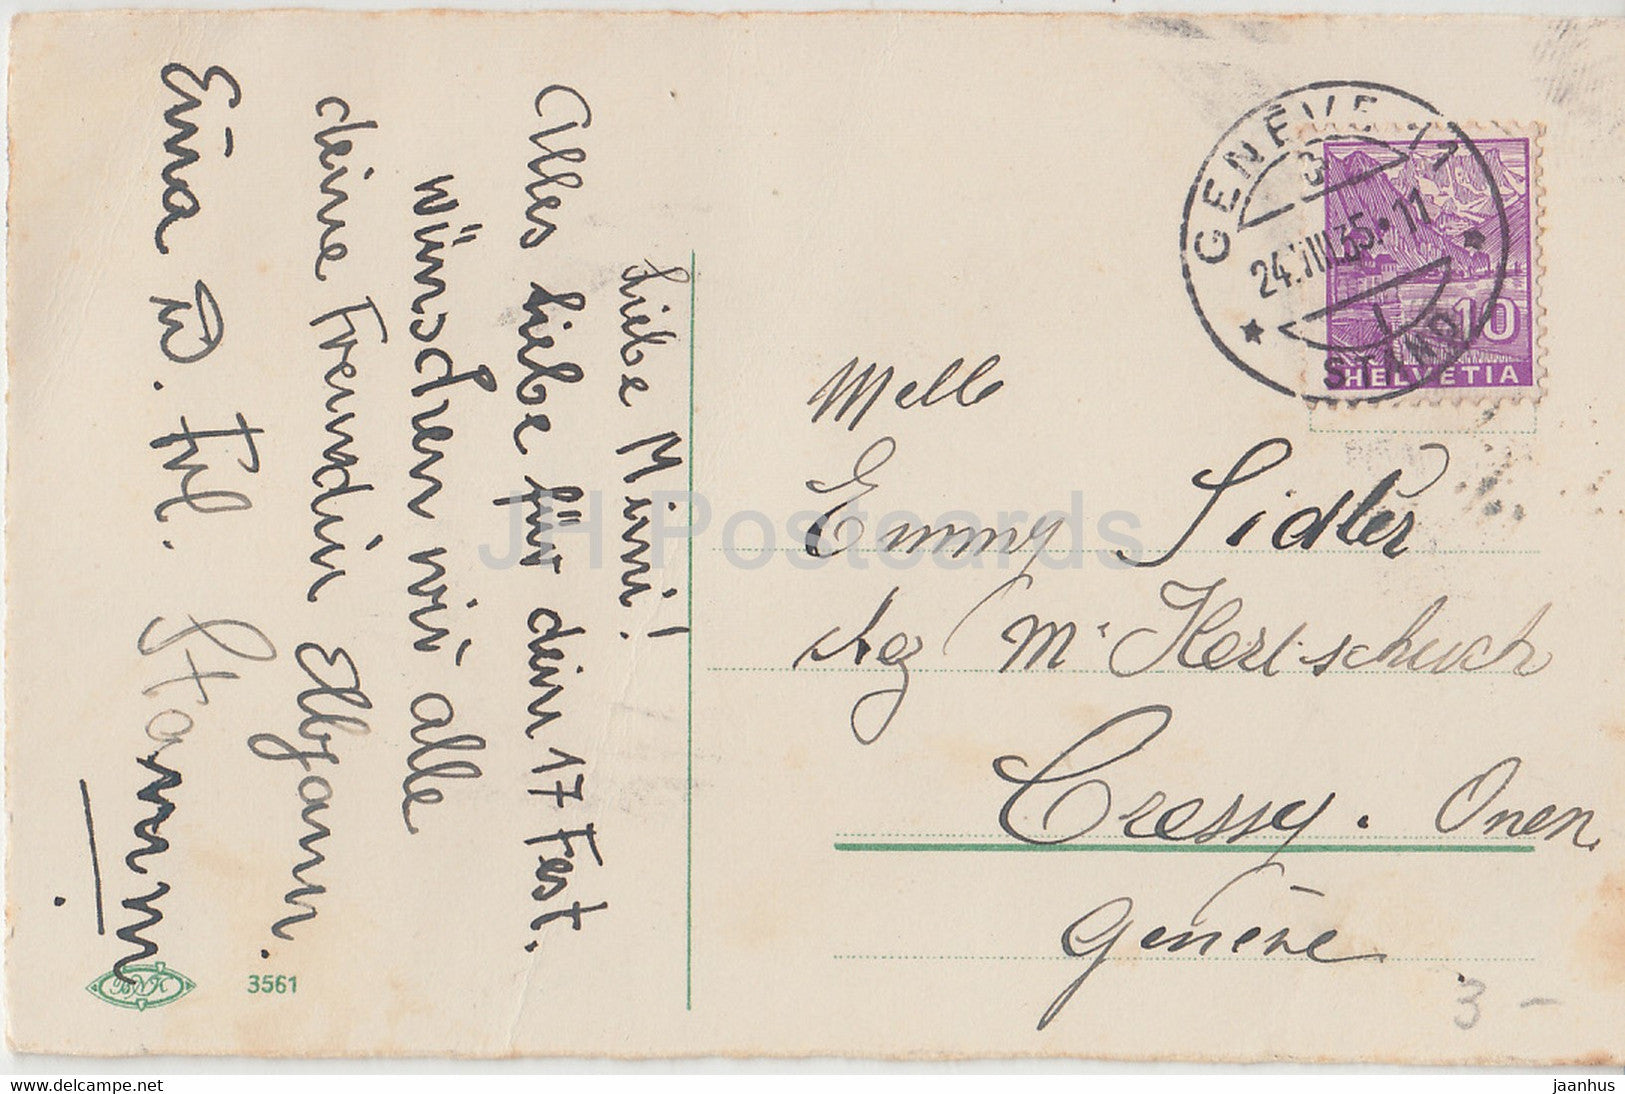 Liebe Mimi!
Alles liebe für dein 17 Fest.
wünschen wir alle
deine Freundin
Erna u. Frl. Stamm
BNK
3561
GENEVE 1
24.VIII.35. 11
STAND
10
HELVETIA
Melle
Emmy Sidler
chez Mr
Cressy. Onex
Genève
3 -
JH Postcards
www.delcampe.net
jaanhus